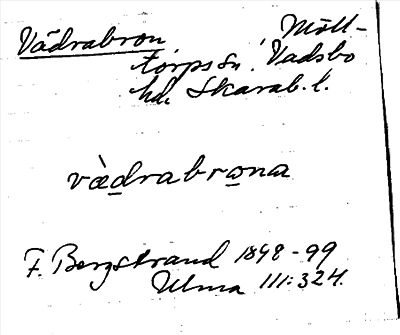 Vädrabron, Möll-
torps sn. Vadsbo
hd. Skarab. l.
vàd̲rabrω̲na
F. Bergstrand 1898-99
Ulma 111:324.